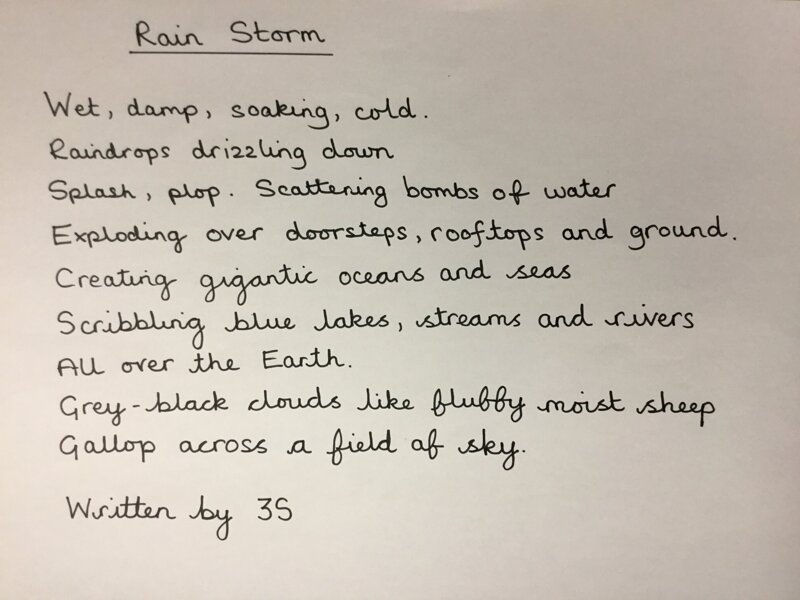 Rain Storm
Wet, damp, soaking, cold.
Raindrops drizzling down
Splash, plop. Scattering bombs of water
Exploding over doorsteps, rooftops and ground.
Creating gigantic oceans and seas
Scribbling blue lakes, streams and rivers
All over the Earth.
Grey-black clouds like fluffy moist sheep
Gallop across a field of sky.
Written by 3S